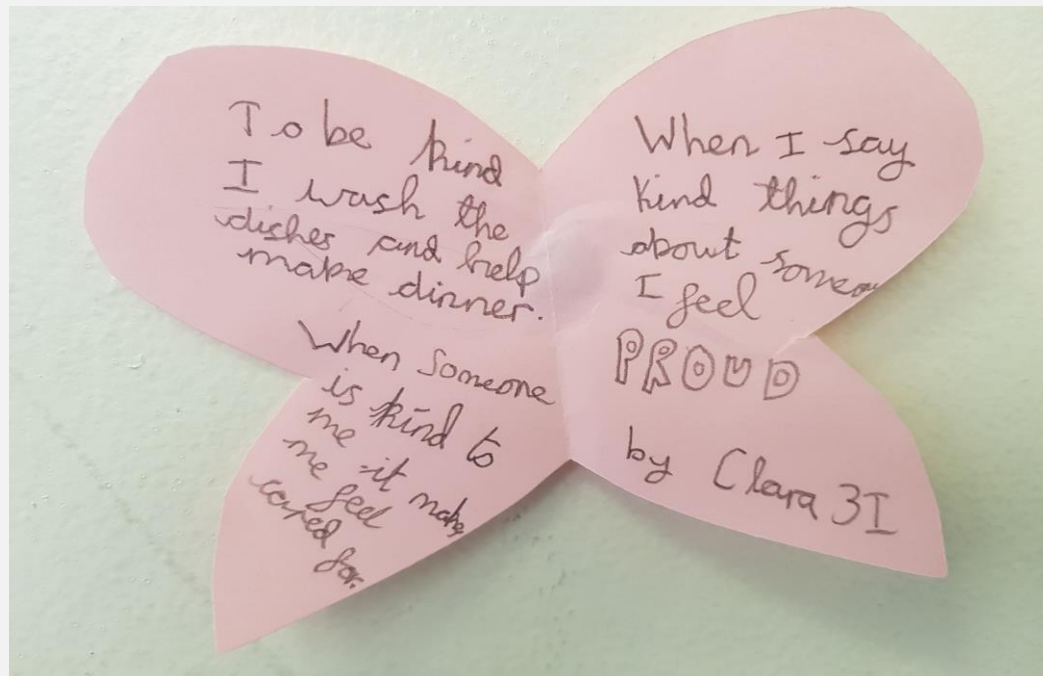 To be kind
I wash the
dishes and help
make dinner.
When someone
is kind to
me it makes
me feel
cared for.
When I say
kind things
about someone
I feel
PROUD
by Clara 3I